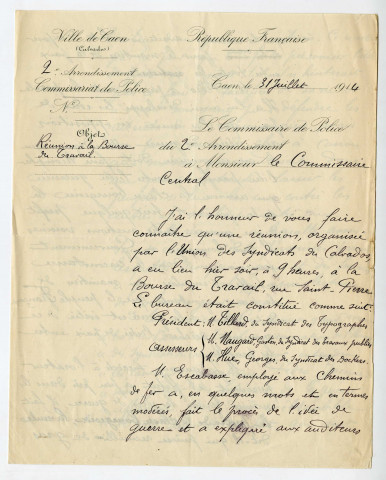 Ville de Caen
(Calvados)
République Française
2e Arrondissement
Commissariat de Police
Caen, le 31 Juillet 1914
N°
Objet
Réunion à la Bourse
du Travail.
Le Commissaire de Police
du 2e Arrondissement
à Monsieur le Commissaire
Central
J'ai l'honneur de vous faire
connaître qu'une réunion, organisée
par l'Union des Syndicats du Calvados,
a eu lieu hier soir, à 9 heures, à la
Bourse du Travail, rue Saint-Pierre.
Le bureau était constitué comme suit:
Président: M. Tillard, du Syndicat des Typographes
Assesseurs
M. Maugard Gaston, du Syndicat des travaux publics
M. Hue, Georges, du Syndicat des Dockers.
M. Escabasse employé aux Chemins
de fer a, en quelques mots et en termes
modérés, fait le procès de l'idée de
guerre et a expliqué aux auditeurs